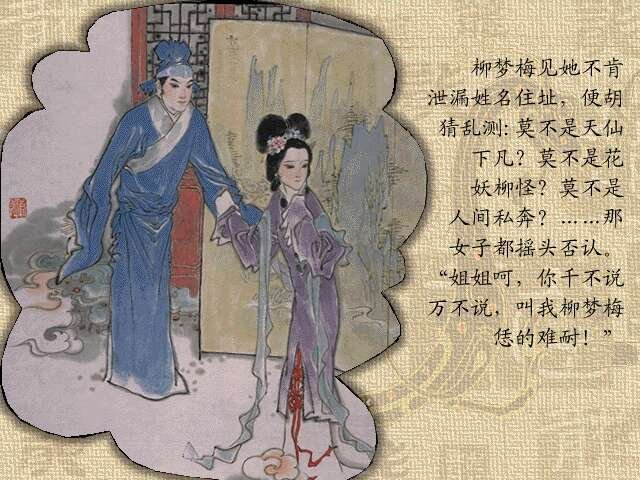 柳梦梅见她不肯
泄漏姓名住址，便胡
猜乱测:莫不是天仙
下凡？莫不是花
妖柳怪？莫不是
人间私奔？……那
女子都摇头否认。
“姐姐呵，你千不说
万不说，叫我柳梦梅
恁的难耐！”